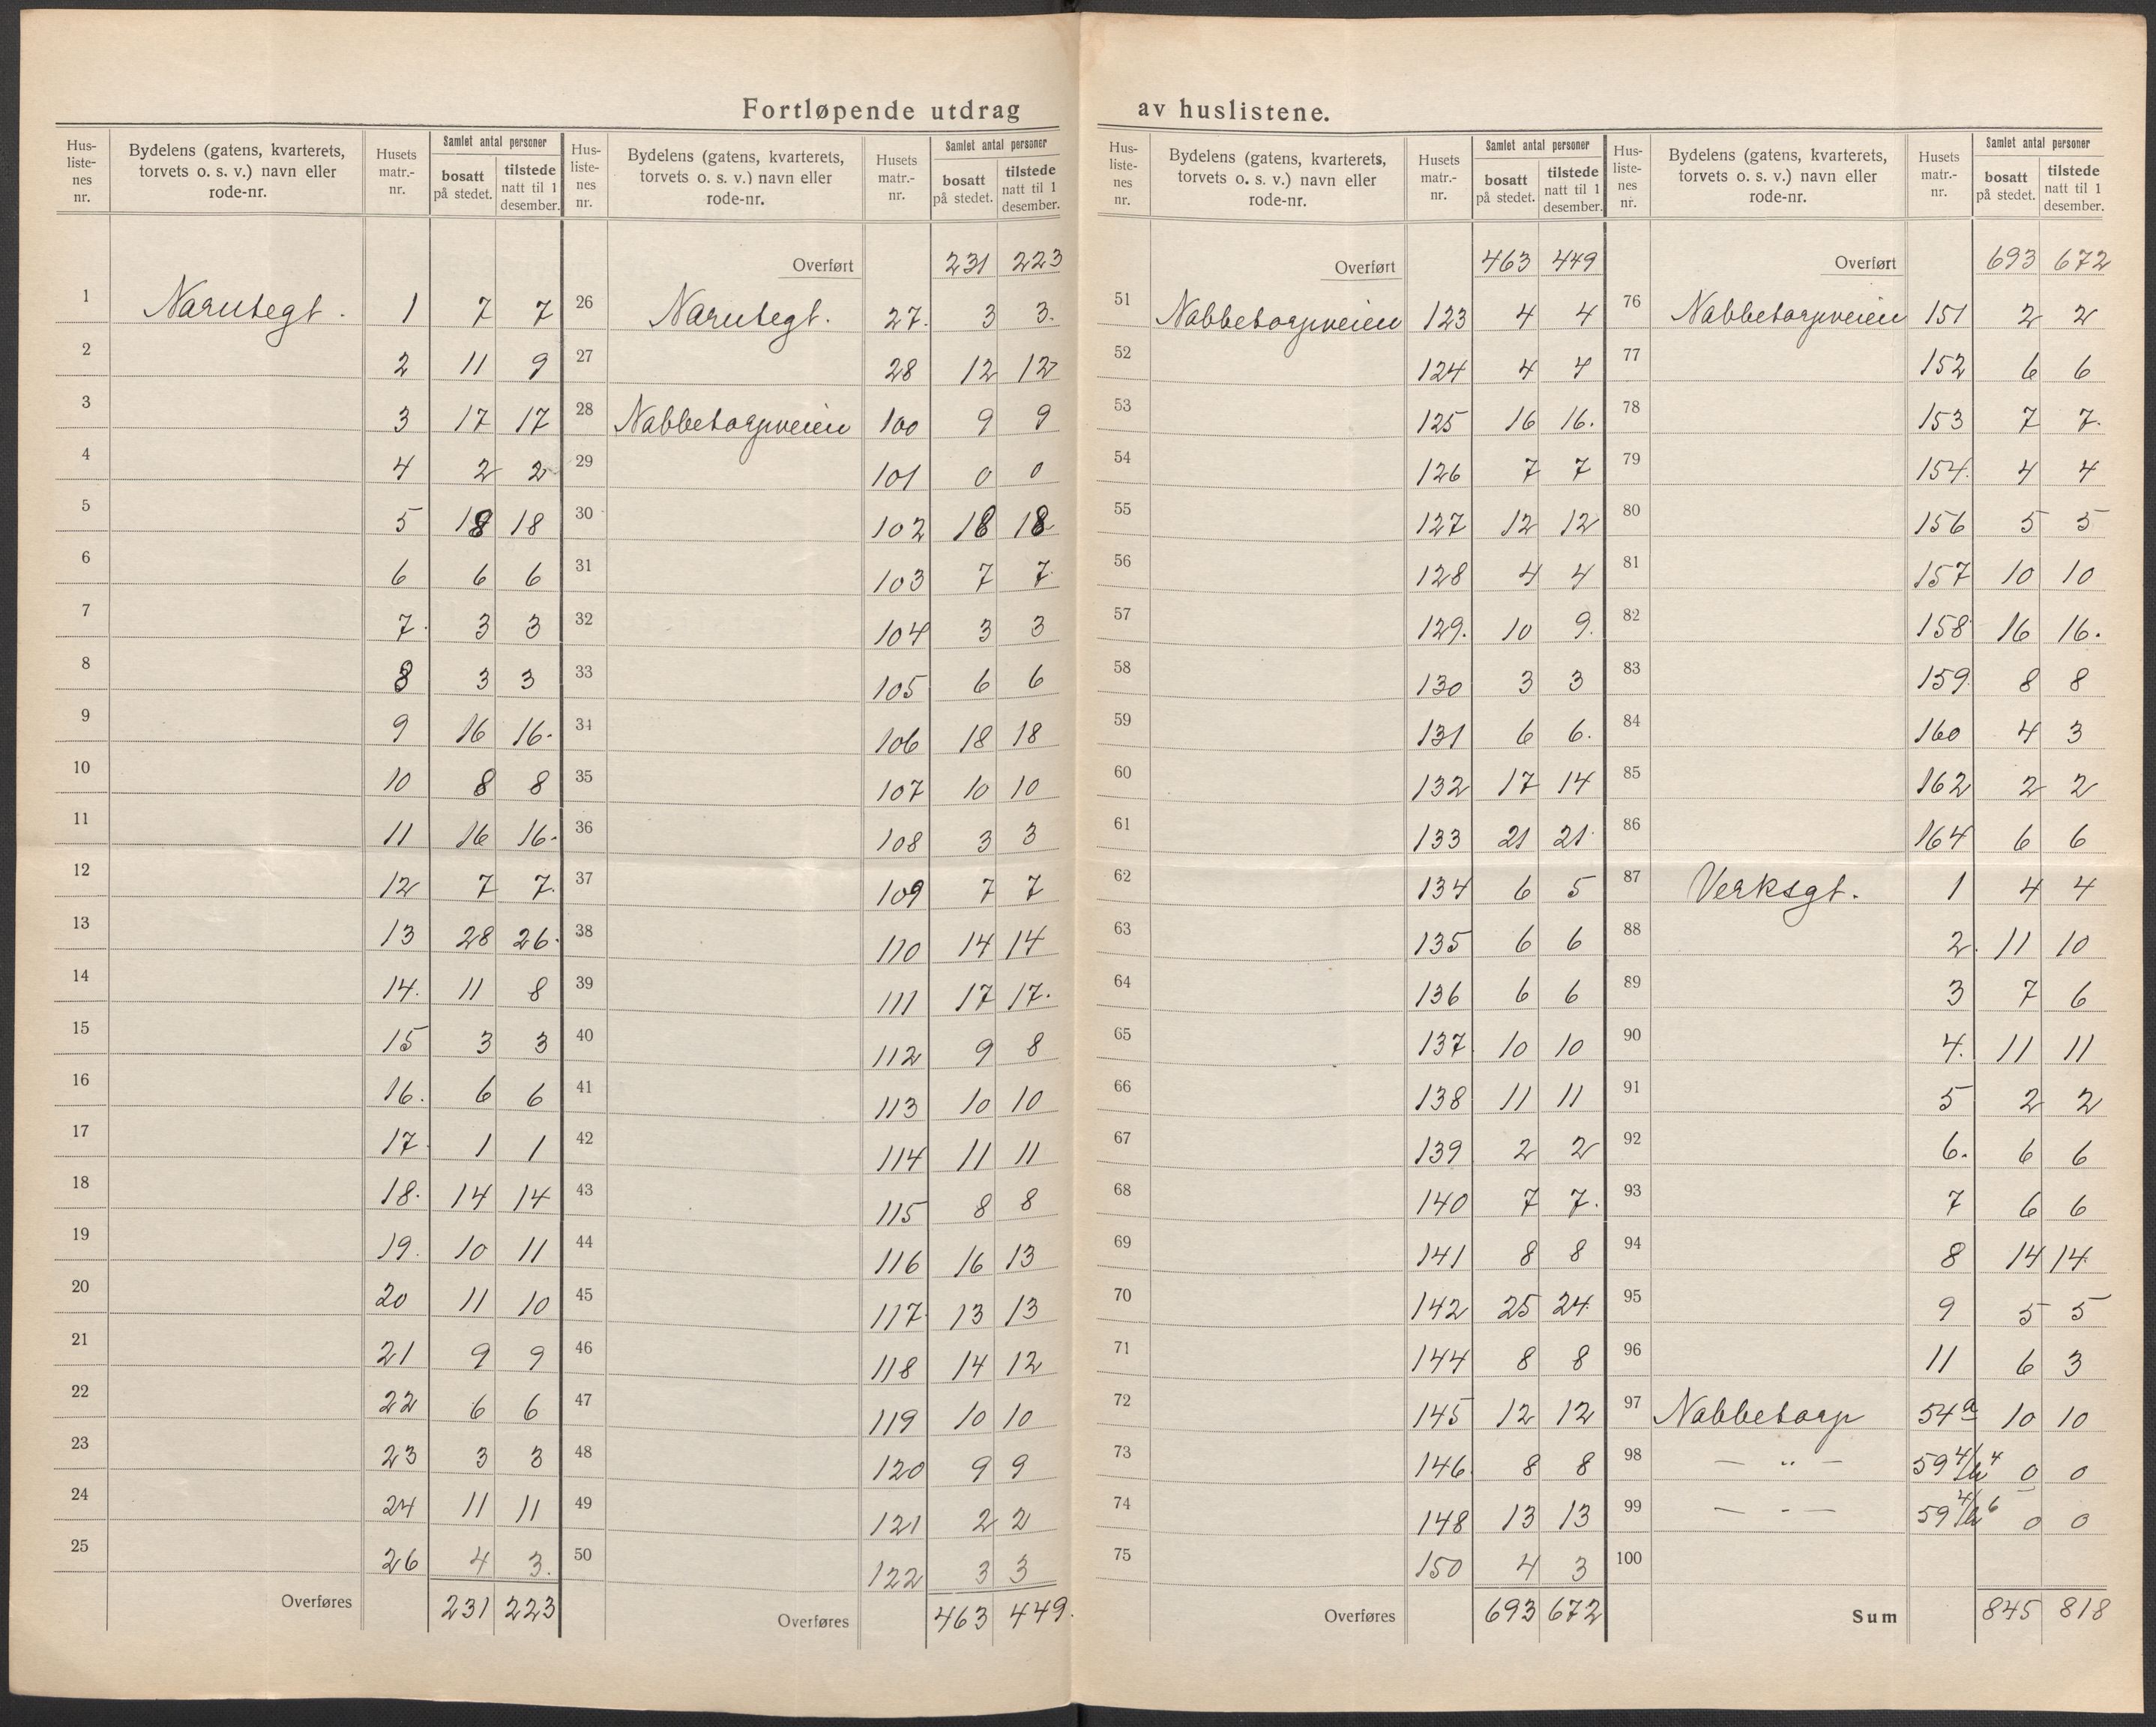 Fortløpende utdrag av huslistene.
Hus-listenes nr. | Bydelens (gatens, kvarterets, torvets o. s. v.) navn eller rode-nr. | Husets matr.-nr. | Samlet antal personer bosatt på stedet. | tilstede natt til 1 desember.
1 Narutegt. 1 7 7
2 2 11 9
3 3 17 17
4 4 2 2
5 5 18 18
6 6 6 6
7 7. 3 3
8 8 3 3
9 9 16 16.
10 10 8 8
11 11 16 16.
12 12 7 7.
13 13 28 26.
14 14. 11 8
15 15 3 3
16 16. 6 6
17 17. 1 1
18 18. 14 14
19 19. 10 11
20 20 11 10
21 21 9 9
22 22 6 6
23 23 3 3
24 24 11 11
25 26 4 3.
Overføres 231 223
Hus-listenes nr. | Bydelens (gatens, kvarterets, torvets o. s. v.) navn eller rode-nr. | Husets matr.-nr. | Samlet antal personer bosatt på stedet. | tilstede natt til 1 desember.
Overført 231 223
26 Narutegt. 27. 3 3.
27 28 12 12
28 Nabbetorpveien 100 9 9
29 101 0 0
30 102 18 18
31 103 7 7.
32 104 3 3
33 105 6 6
34 106 18 18
35 107 10 10
36 108 3 3
37 109 7 7
38 110 14 14
39 111 17 17.
40 112 9 8
41 113 10 10
42 114 11 11
43 115 8 8
44 116 16 13
45 117. 13 13
46 118 14 12
47 119 10 10
48 120 9 9
49 121 2 2
50 122 3 3
Overføres 463 449.
Hus-listenes nr. | Bydelens (gatens, kvarterets, torvets o. s. v.) navn eller rode-nr. | Husets matr.-nr. | Samlet antal personer bosatt på stedet. | tilstede natt til 1 desember.
Overført 463 449
51 Nabbetorpveien 123 4 4
52 124 4 4
53 125 16 16.
54 126 7 7
55 127 12 12
56 128 4 4
57 129. 10 9.
58 130 3 3
59 131 6 6.
60 132 17 14
61 133 21 21
62 134 6 5
63 135 6 6
64 136 6 6
65 137 10 10
66 138 11 11
67 139 2 2
68 140 7 7.
69 141 8 8
70 142 25 24
71 144 8 8
72 145 12 12
73 146. 8 8
74 148 13 13
75 150 4 3
Overføres 693 672
Hus-listenes nr. | Bydelens (gatens, kvarterets, torvets o. s. v.) navn eller rode-nr. | Husets matr.-nr. | Samlet antal personer bosatt på stedet. | tilstede natt til 1 desember.
Overført 693 672
76 Nabbetorpveien 151 2 2
77 152 6 6
78 153 7 7.
79 154. 4 4
80 156 5 5
81 157 10 10
82 158 16 16.
83 159. 8 8
84 160 4 3
85 162 2 2
86 164 6 6
87 Verksgt. 1 4 4
88 2. 11 10
89 3 7 6
90 4. 11 11
91 5 2 2
92 6. 6 6
93 7 6 6
94 8 14 14
95 9 5 5
96 11 6 3
97 Nabbetorp 54a 10 10
98 — „ — 59 0 0
99 — - — 59 0 0
100
Sum 845 818